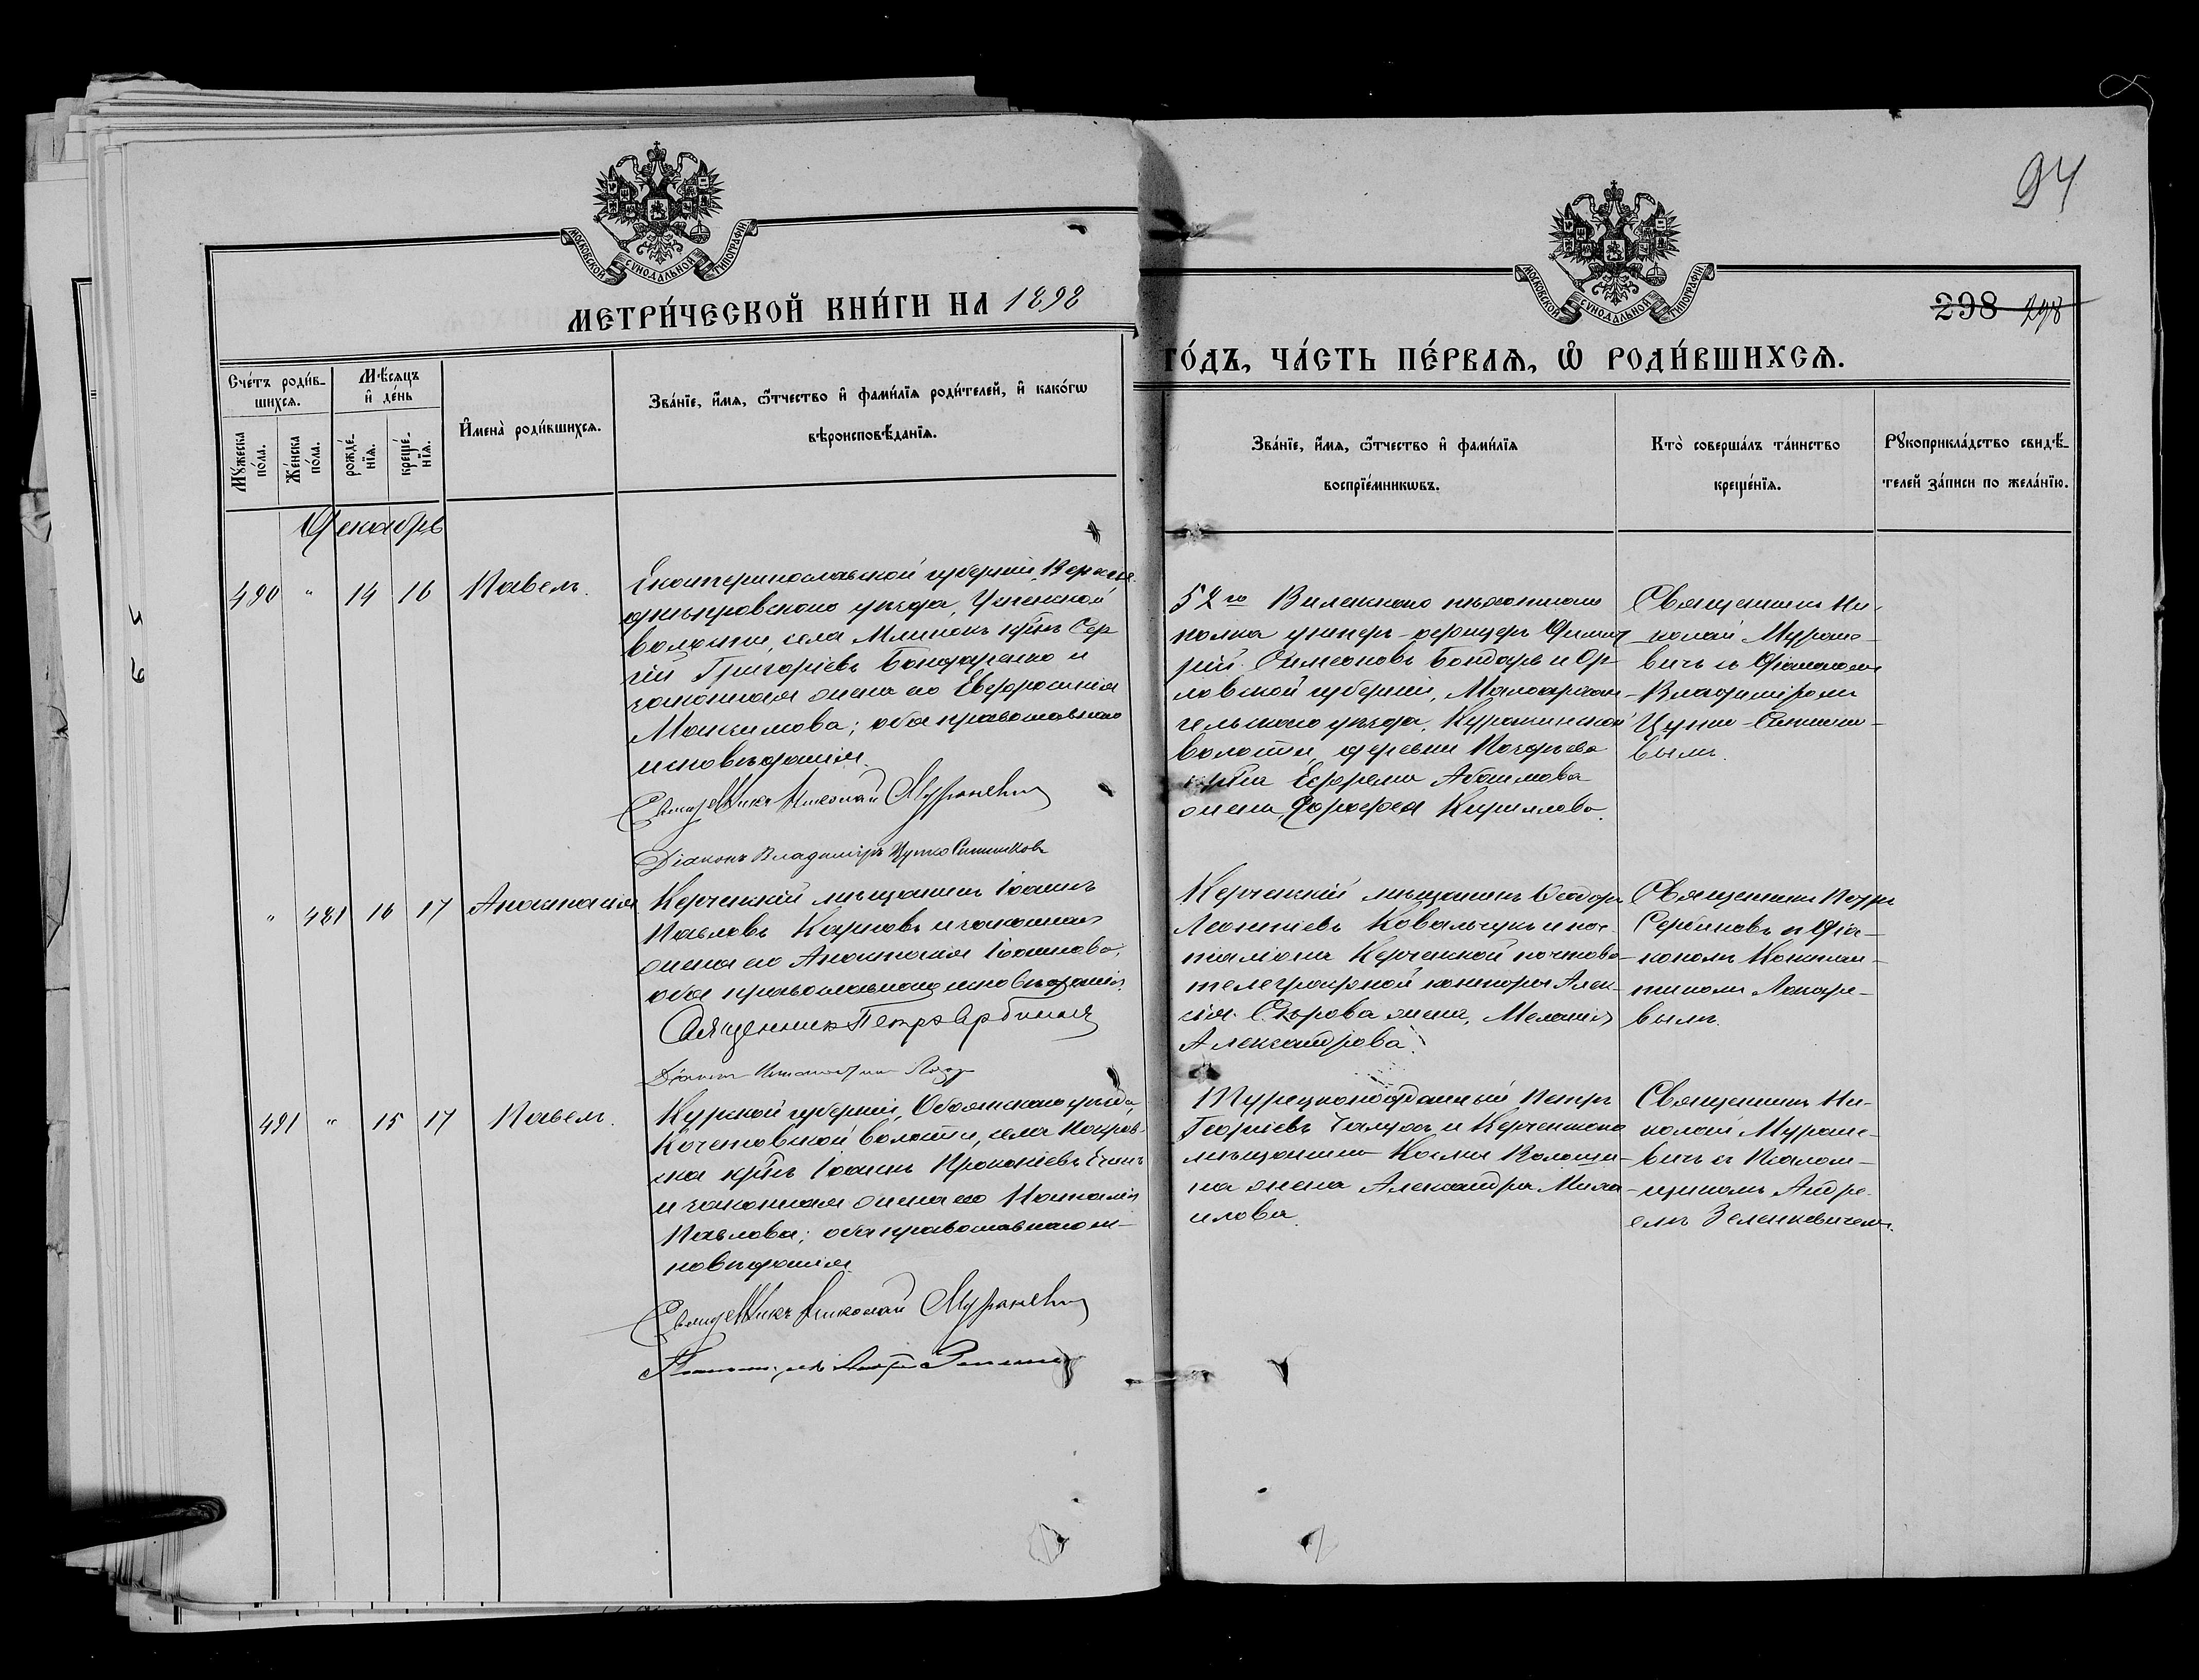 94
МОСКОВСКОЙ СѴНОДАЛЬНОЙ ТИПОГРАФІИ
МОСКОВСКОЙ СѴНОДАЛЬНОЙ ТИПОГРАФІИ
МЕТРИ́ЧЕСКОЙ КНИ́ГИ НА 1898
ГО́ДЪ, ЧА́СТЬ ПЕ́РВАѦ, Ѡ҆ РОДИ́ВШИХСѦ.
298 298
Сче́тъ роди́в-
шихсѧ.
Мѣ́сѧцъ
и҆ де́нь
Мꙋ́жеска
по́ла.
Же́нска
по́ла.
рожде́-
нїѧ.
креще́-
нїѧ.
И҆мена̀ роди́вшихсѧ.
Зва́нїе, и҆́мѧ, ѻ҆́тчество и҆ фами́лїѧ роди́телей, и҆ како́гѡ
вѣроисповѣ́данїѧ.
Зва́нїе, и҆́мѧ, ѻ҆́тчество и҆ фами́лїѧ
воспрїе́мникѡвъ.
Кто̀ соверша́лъ та́инство
креще́нїѧ.
Рꙋкоприкла́дство свидѣ́-
телей за́писи по жела́нїю.
Декабрь
490 " 14 16 Павелъ.
Екатеринославской губерніи, Верхне-
днѣпровскаго уѣзда,
волости, села Млинокъ кр̃нъ Сер
гій Григоріевъ Бондаренко и
законная жена его Евфросинія
Максимова; оба православнаго
исповѣданія.
Священникъ Николай Мураневичъ
Діаконъ Владиміръ Цупко Ситниковъ
52го Виленскаго пѣхотнаго
полка унтеръ-офицеръ Дими
рій Симеоновъ Бондарь и Ор
ловской губерніи, Малоархан
гельскаго уѣзда,
волости, деревни
Ефрема Абакумова
жена, Кириллова.
Священникъ Ни-
колай Муране-
вичъ съ Діакономъ
Владиміромъ
Цупко-Ситнико-
вымъ.
" 481 16 17 Анастасія
Керченскій мѣщанинъ Іоаннъ
Павловъ Карповъ и законная
жена его Анастасія Іоаннова,
оба православнаго исповѣданія.
Священникъ Петръ Сербиновъ
Діаконъ
Керченскій мѣщанинъ Ѳеодоръ
Леонтіевъ Ковальчукъ и поч-
таліона Керченской почтово-
телеграфной конторы Алек-
сія жена, Меланія
Александрова.
Священникъ Петръ
Сербиновъ съ Діа-
кономъ Констан-
тиномъ Лазаре-
вымъ.
491 " 15 17 Павелъ.
Курской губерніи, Обоянскаго уѣзда,
Кочетовской волости, села Покров-
ска кр̃нъ Іоаннъ Прокопіевъ
и законная жена его Наталія
Павлова; оба православнаго ис-
повѣданія.
Священникъ Николай Мураневичъ
Турецкоподданный Петръ
Георгіевъ и Керченскаго
мѣщанина Космы Волощи-
на жена Александра Миха
илова.
Священникъ Ни-
колай Муране-
вичъ съ Псалом-
щикомъ Андре-
емъ Зеленкевичемъ.